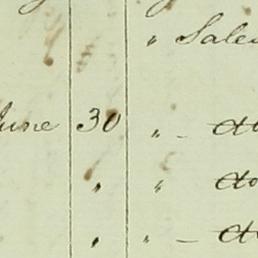 " Sales
June 30 " - do
" " do
" " - do